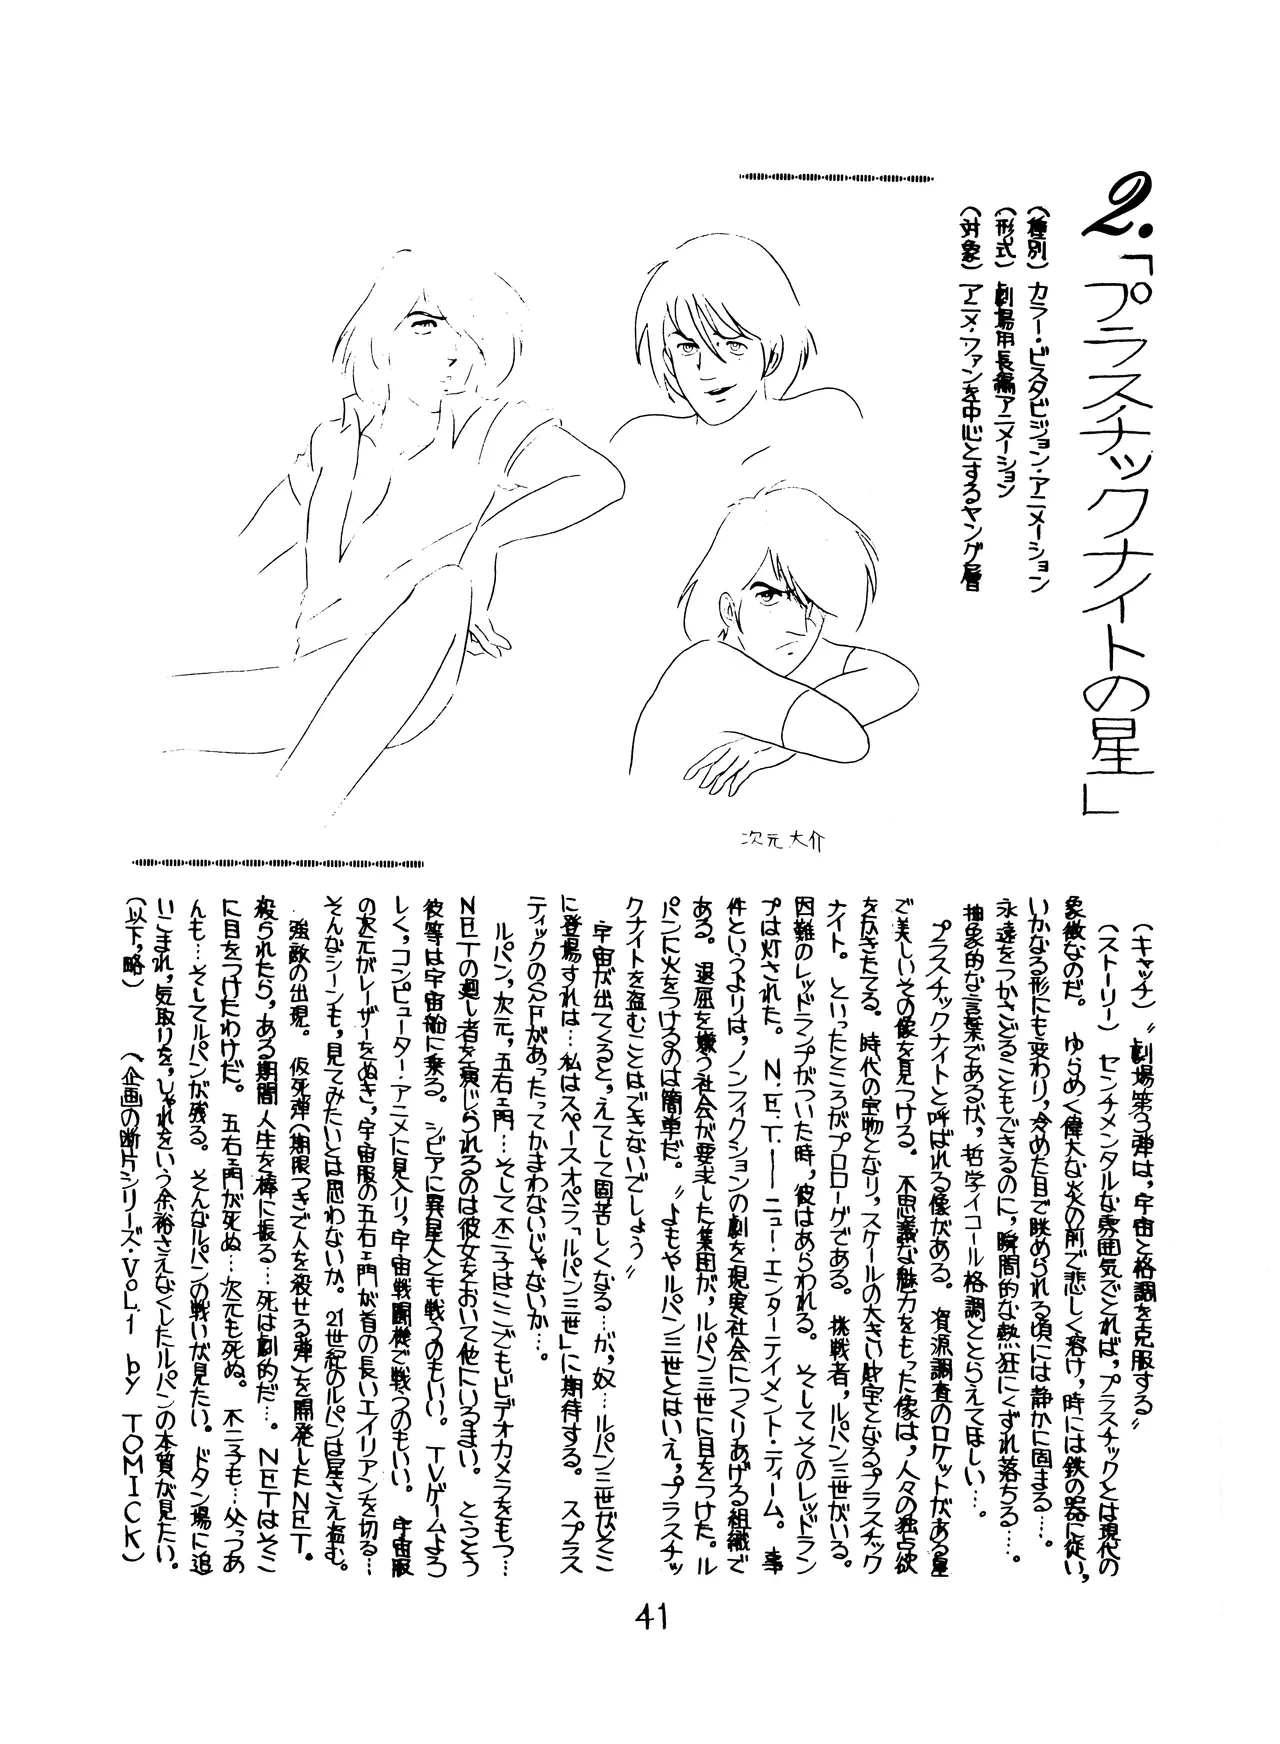 2.「プラスチックナイトの星」
(種別) カラー・ビスタビジョン・アニメーション
(形式) 劇場用長編アニメーション
(対象) アニメ・ファンを中心とするヤング層
次元大介
(キャッチ)〝劇場第3弾は,宇宙と格調を克服する〟
(ストーリー) センチメンタルな雰囲気でとれば,プラスチックとは現代の
象徴なのだ。 ゆらめく偉大な火の前で悲しく溶け,時には鉄の器に従い,
いかなる形にも変わり,冷めた目で眺められる頃には静かに固まる…。
永遠をつかさどることもできるのに,瞬間的な熱狂にくずれ落ちる…。
抽象的な言葉であるが,哲学イコール格調ととらえてほしい…。
プラスチックナイトと呼ばれる像がある。 資源調査のロケットがある星
で美しいその像を見つける。 不思議な魅力をもった像は,人々の独占欲
をかきたてる。 時代の宝物となり,スケールの大きい財宝となるプラスチック
ナイト。 といったところがプロローグである。 挑戦者,ルパン三世がいる。
困難のレッドランプがついた時,彼はあらわれる。 そしてそのレッドラン
プは灯された。 N.E.T.──ニュー・エンターテイメント・ティーム。 事
件というよりは,ノンフィクションの劇を現実社会につくりあげる組織で
ある。 退屈を嫌う社会が要求した集団が,ルパン三世に目をつけた。ル
パンに火をつけるのは簡単だ。〝よもやルパン三世とはいえ,プラスチッ
クナイトを盗むことはできないでしょう〟
宇宙が出てくると,えてして固苦しくなる…が,奴…ルパン三世がそこ
に登場すれば…私はスペースオペラ「ルパン三世」に期待する。 スプラス
ティックのSFがあったてかまわないじゃないか…。
ルパン,次元,五右ェ門…そして不二子はここでもビデオカメラをもつ…
NETの廻し者を演じられるのは彼女をおいて他にいるまい。 とうとう
彼等は宇宙船に乗る。 シビアに異星人とも戦うのもいい。 TVゲームよろ
しく,コンピューター・アニメに見入り,宇宙戦闘機で戦うのもいい。 宇宙服
の次元がレーザーをぬき,宇宙服の五右ェ門が首の長いエイリアンを切る…
そんなシーンも,見てみたいとは思わないか。21世紀のルパンは星さえ盗む。
強敵の出現。 仮死弾(期限つきで人を殺せる弾)を開発したNET。
殺られたら,ある期間人生を棒に振る…死は劇的だ…。NETはそこ
に目をつけたわけだ。 五右ェ門が死ぬ…次元も死ぬ。 不二子も…父つあ
んも…そしてルパンが残る。 そんなルパンの戦いが見たい。ドタン場に追
いこまれ,気取りを,しゃれをいう余裕さえなくしたルパンの本質が見たい。
(以下,略) (企画の断片シリーズ・VOL.1 by TOMICK)
41